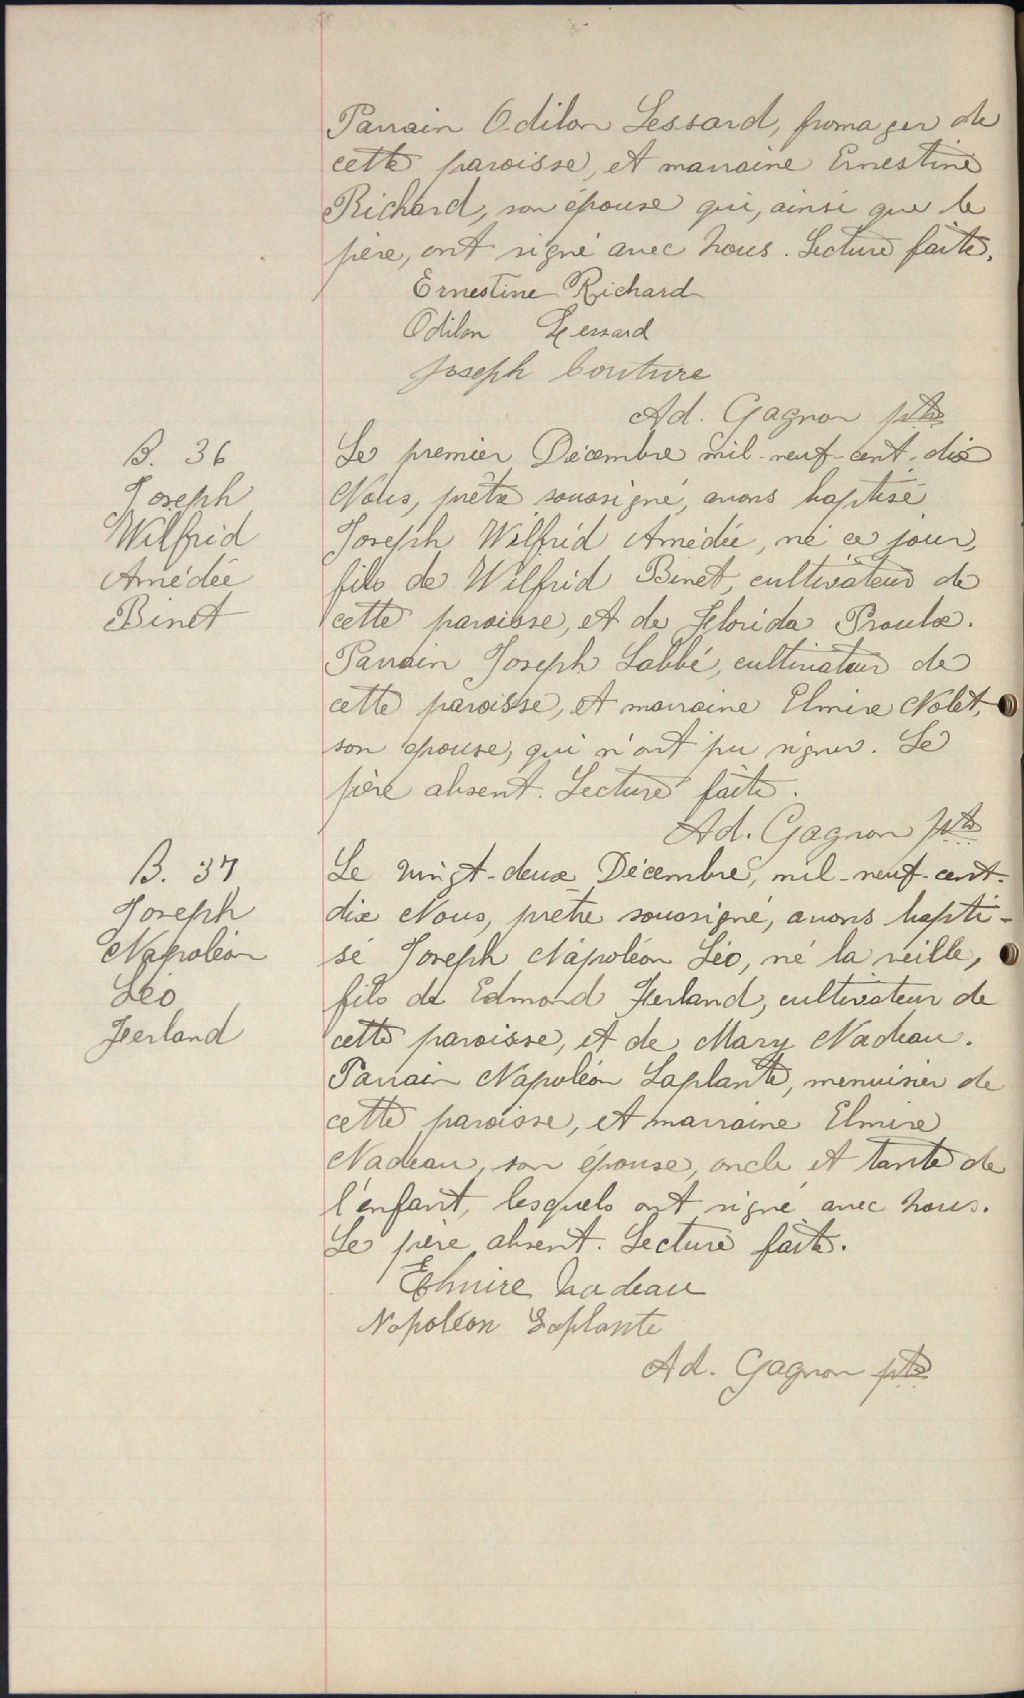 Parrain Odilon Lessard, fromager de
cette paroisse, et marraine Ernestine
Richard, son épouse qui, ainsi que le
père, ont signé avec nous. Lecture faite.
Ernestine Richard
Odilon Lessard
Joseph Couture
Ad. Gagnon ptre
B. 36
Joseph
Wilfrid
Amédée
Binet
Le premier Décembre mil-neuf-cent-dix
Nous, prêtre soussigné, avons baptisé
Joseph Wilfrid Amédée, né ce jour,
fils de Wilfrid Binet, cultivateur de
cette paroisse, et de Florida Proulx.
Parrain Joseph Labbé, cultivateur de
cette paroisse, et marraine Elmire Nolet,
son épouse, qui n'ont pu signer. Le
père absent. Lecture faite.
Ad. Gagnon ptre
B. 37
Joseph
Napoléon
Léo
Ferland
Le vingt-deux Décembre, mil-neuf-cent-
dix Nous, prêtre soussigné, avons bapti-
sé Joseph Napoléon Léo, né la veille,
fils de Edmond Ferland, cultivateur de
cette paroisse, et de Mary Nadeau.
Parrain Napoléon Laplante, menuisier de
cette paroisse, et marraine Elmire
Nadeau, son épouse, oncle et tante de
l'enfant, lesquels ont signé avec nous.
Le père absent. Lecture faite.
Elmire Nadeau
Napoléon Laplante
Ad. Gagnon ptre